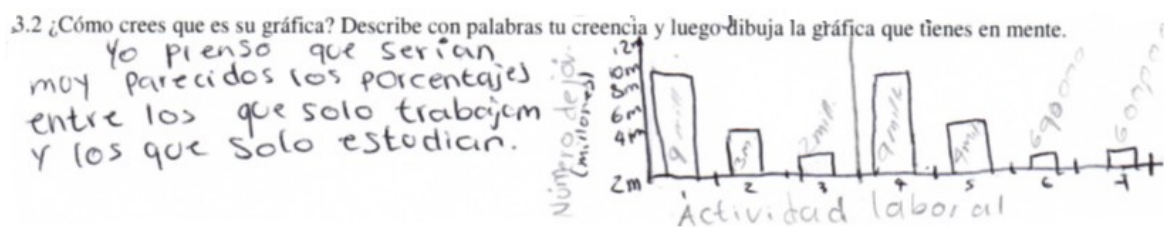 3.2 ¿Cómo crees que es su gráfica? Describe con palabras tu creencia y luego dibuja la gráfica que tienes en mente.
Yo pienso que serian
muy parecidos los porcentajes
entre los que solo trabajam
y los que solo estudian.
Número de jóv.
(millones)
12m
10m
8m
6m
4m
2m
9 mill
3m
2 mill.
9 mill
4 mill
690000
600000
1 2 3 4 5 6 7
Actividad laboral